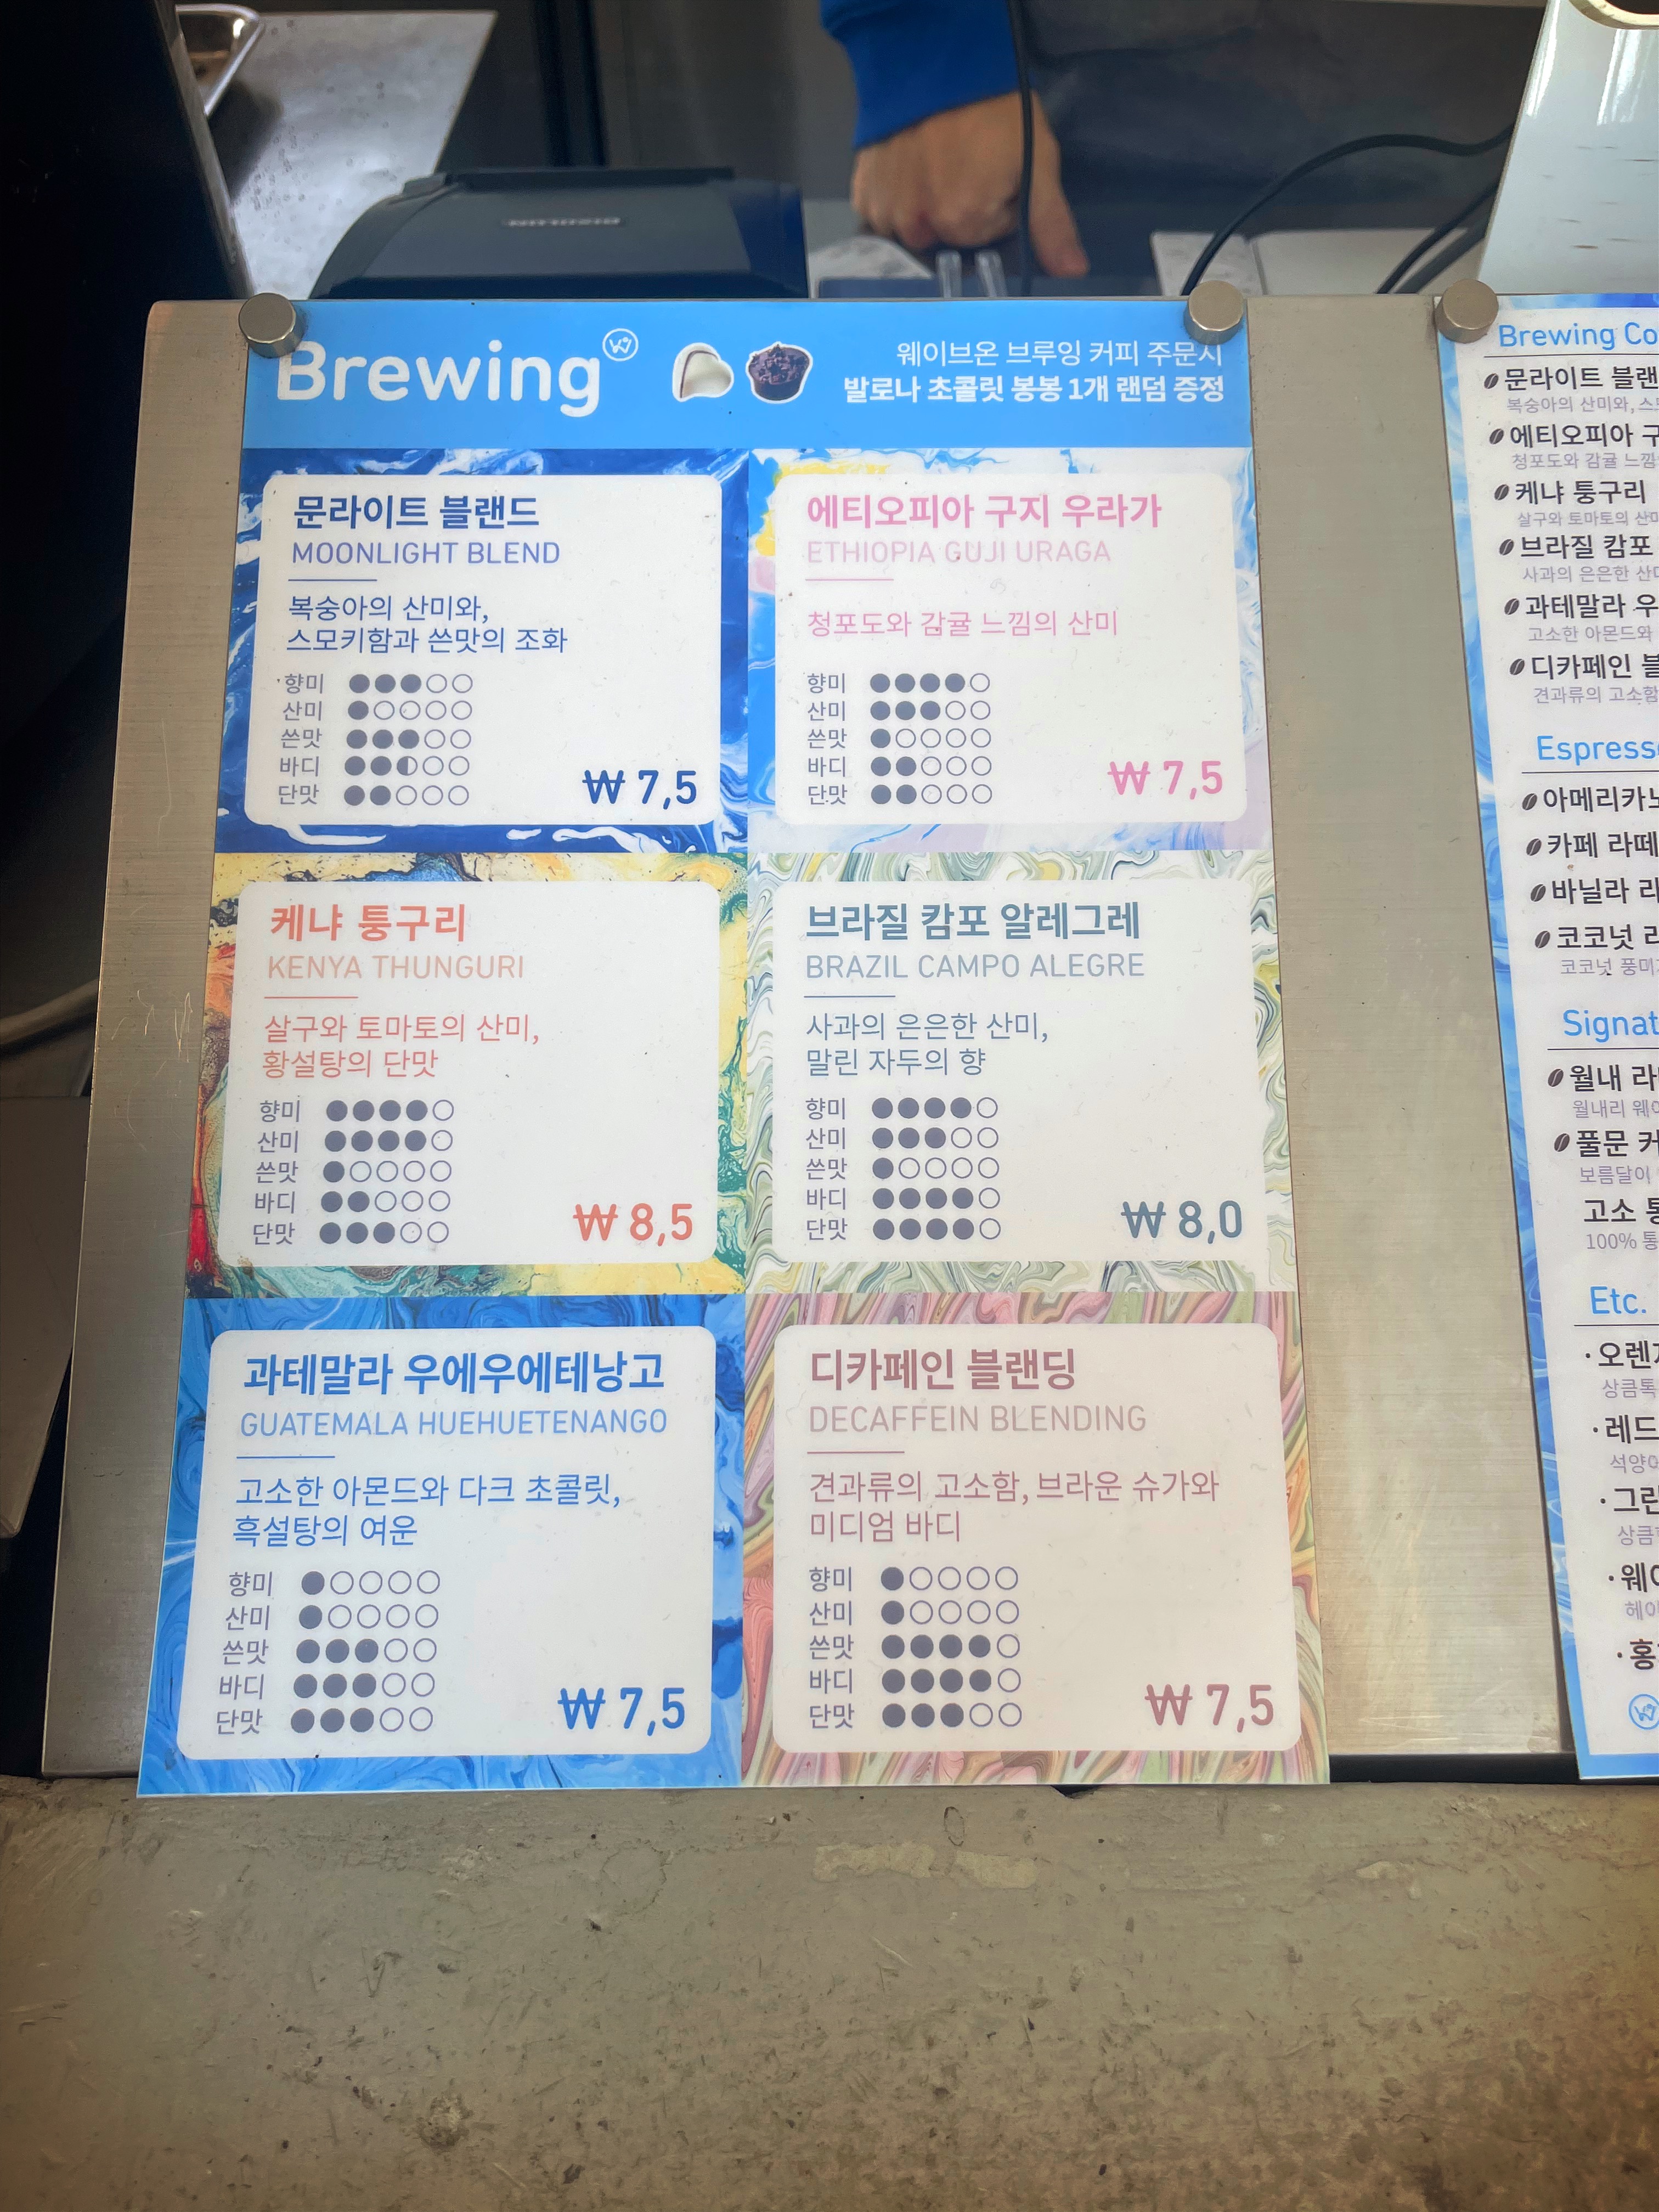 Brewing
웨이브온 브루잉 커피 주문시
발로나 초콜릿 봉봉 1개 랜덤 증정
문라이트 블랜드
MOONLIGHT BLEND
복숭아의 산미와,
스모키함과 쓴맛의 조화
향미
산미
쓴맛
바디
단맛
₩ 7,5
에티오피아 구지 우라가
ETHIOPIA GUJI URAGA
청포도와 감귤 느낌의 산미
향미
산미
쓴맛
바디
단맛
₩ 7,5
케냐 퉁구리
KENYA THUNGURI
살구와 토마토의 산미,
황설탕의 단맛
향미
산미
쓴맛
바디
단맛
₩ 8,5
브라질 캄포 알레그레
BRAZIL CAMPO ALEGRE
사과의 은은한 산미,
말린 자두의 향
향미
산미
쓴맛
바디
단맛
₩ 8,0
과테말라 우에우에테낭고
GUATEMALA HUEHUETENANGO
고소한 아몬드와 다크 초콜릿,
흑설탕의 여운
향미
산미
쓴맛
바디
단맛
₩ 7,5
디카페인 블랜딩
DECAFFEIN BLENDING
견과류의 고소함, 브라운 슈가와
미디엄 바디
향미
산미
쓴맛
바디
단맛
₩ 7,5
Brewing Co
문라이트 블랜
복숭아의 산미와, 스
에티오피아 구
청포도와 감귤 느낌
케냐 퉁구리
살구와 토마토의 산미
브라질 캄포
사과의 은은한 산미
과테말라 우
고소한 아몬드와
디카페인 블
견과류의 고소함
Espresso
아메리카노
카페 라떼
바닐라 라
코코넛 라
코코넛 풍미
Signat
월내 라
월내리 웨이
풀문 커
보름달이
고소 통
100% 통
Etc.
· 오렌지
상큼톡
· 레드
석양이
· 그린
상큼
· 웨이
헤이
· 홍